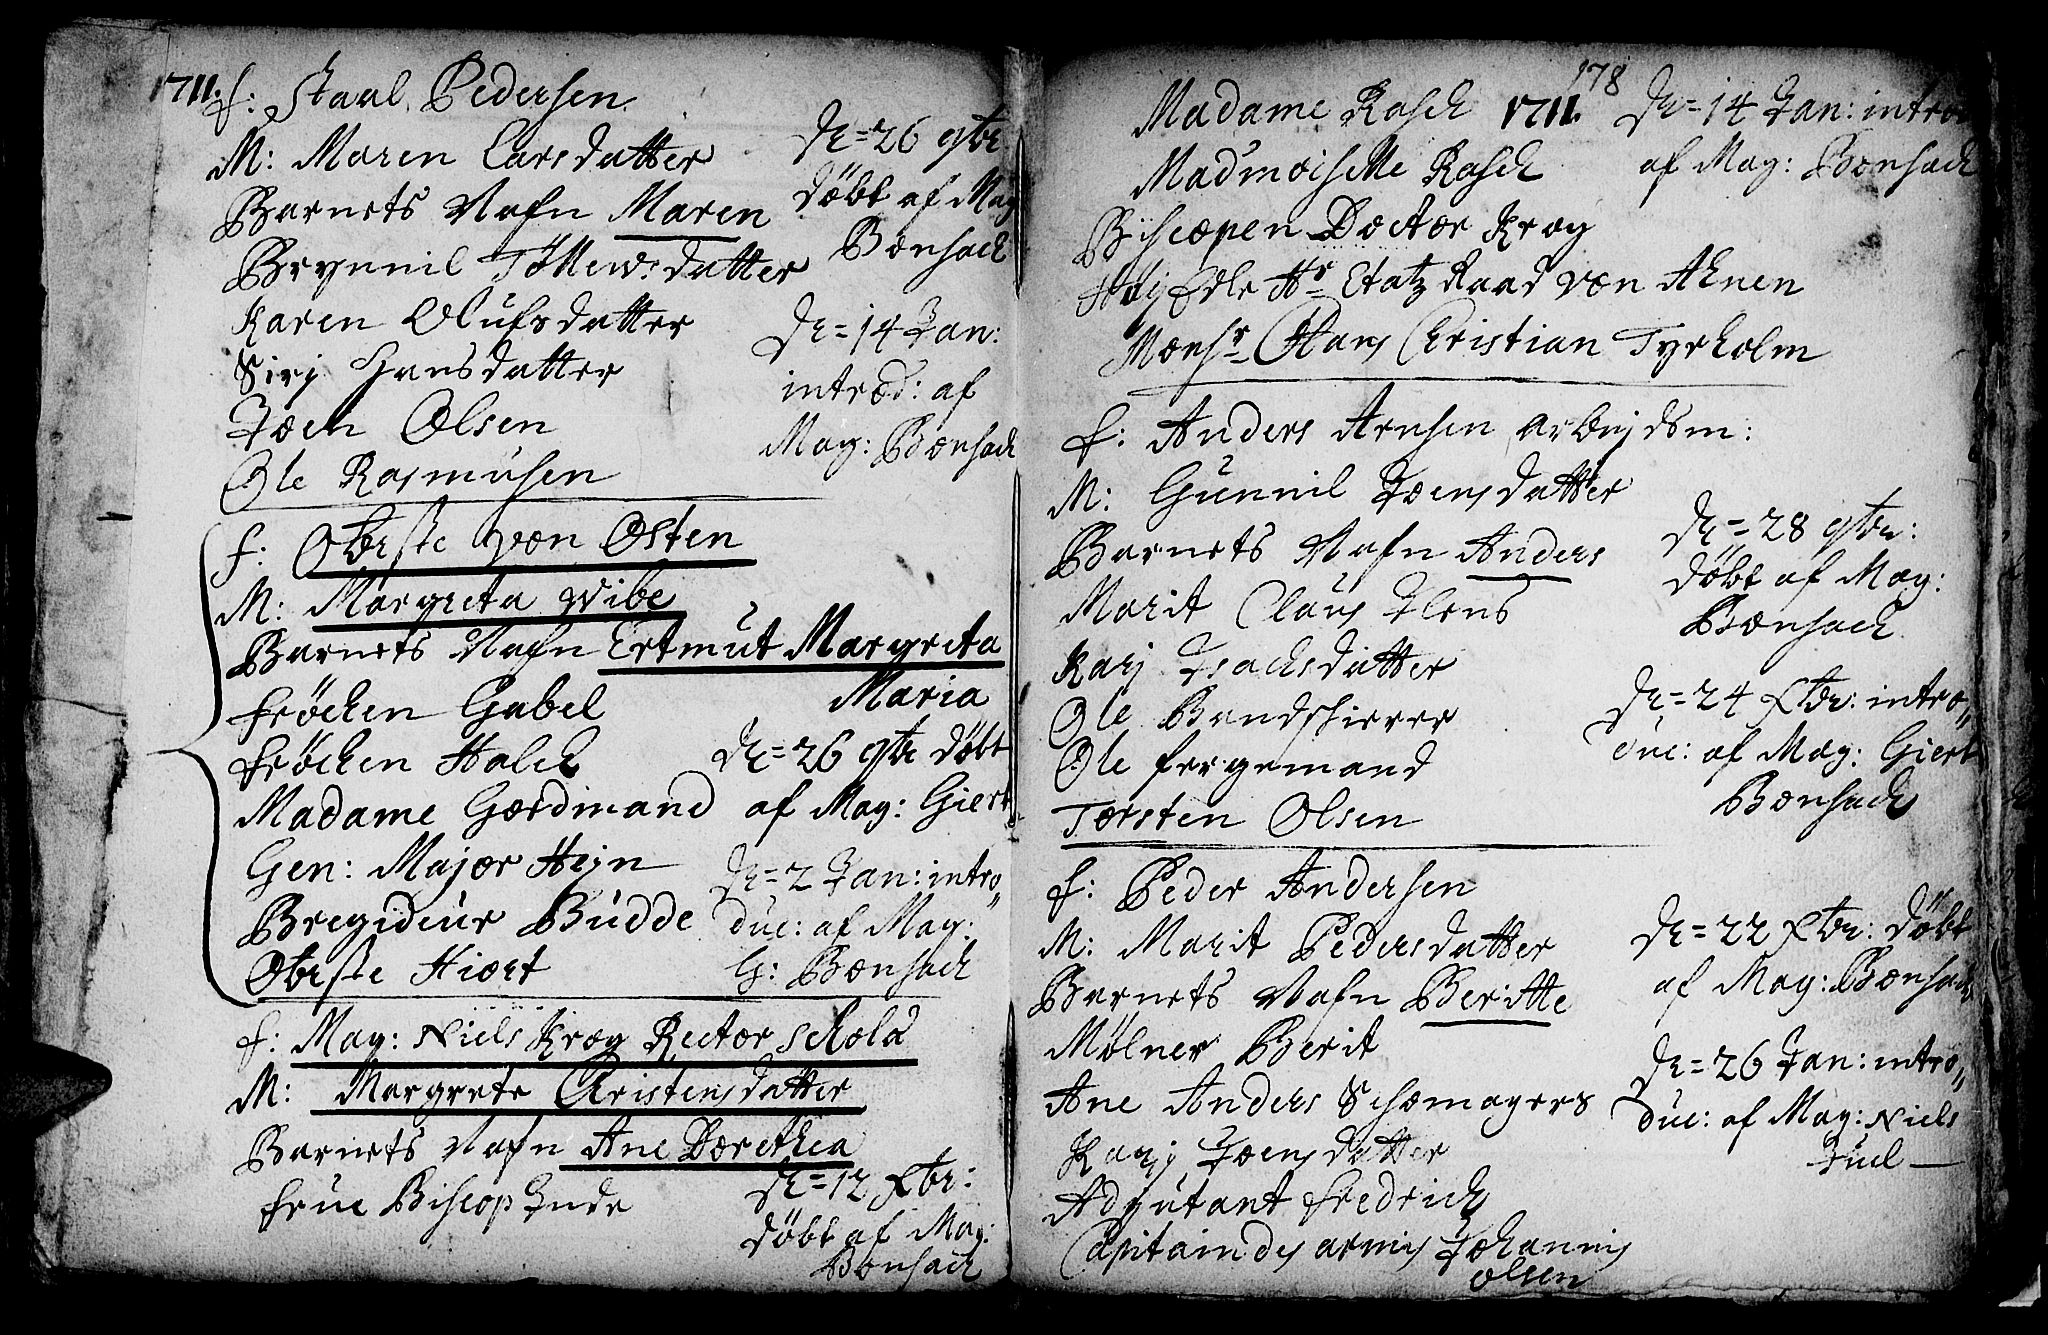 1711.
f: Staal Pedersen
M: Maren Larsdatter
Barnets Nafn Maren
Brynnil Tollewsdatter
Karen Olufsdatter
Sirj Hansdatter
Joen Olsen
Ole Rasmusen
d: = 26 9br
döbt af Mag
Bonsach
d: = 14 Jan:
introd: af
Mag: Bonsach
f: Oberste von Osten
M: Margreta Wibe
Barnets Nafn Ertmut Margreta
Maria
fröchen Gabel
fröchen Halch
Madame Gordimand
Gen: Major Hejn
Bregideur Budde
Oberste Hiort
d: = 26 9br döbt
af Mag: Giert
d: = 2 Jan: intro„
duc: af Mag:
G: Bonsach
f: Mag: Niels Krog Rector Schola
M: Margrete Christensdatter
Barnets Nafn Ane Dorethea
frue Biscop
d: = 12 Xbr:
döbt af Mag:
Bonsach
178
Madame Rasch 1711.
Madmoiselle Rasch
Biscopen Doctor Krog
Höj Edle Hr Etatz Raad von Ahnen
Monsr Hans Christian Tyrholm
d: = 14 Jan: introd
af Mag: Bonsach
f: Anders Arnsen arbejdsm:
M: Gunnil Joensdatter
Barnets Nafn Anders
Marit Claus Iens
Karj Isachsdatter
Ole Bendschierer
Ole fergemand
Torsten Olsen
d: = 28 9br:
döbt af Mag:
Bonsach
d: = 24 Xbr: intro„
duc: af Mag: Giert
Bonsach
f: Peder Andersen
M: Marit Pedersdatter
Barnets Nafn Beritte
Mölner Berit
Ane Anders Schomagers
Karj Joensdatter
Adjutant fredrich
Capitaindes armis Johannis
Olsen
d: = 22 Xbr: döbt
af Mag: Bonsach
d: = 26 Jan: intro„
duc: af Mag: Niels
Juel —